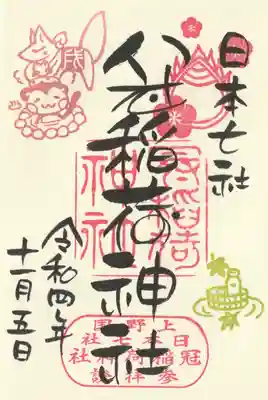 日本七社
冠稲荷神社
令和四年
十一月五日
上野國
日本七社
冠稲荷神社